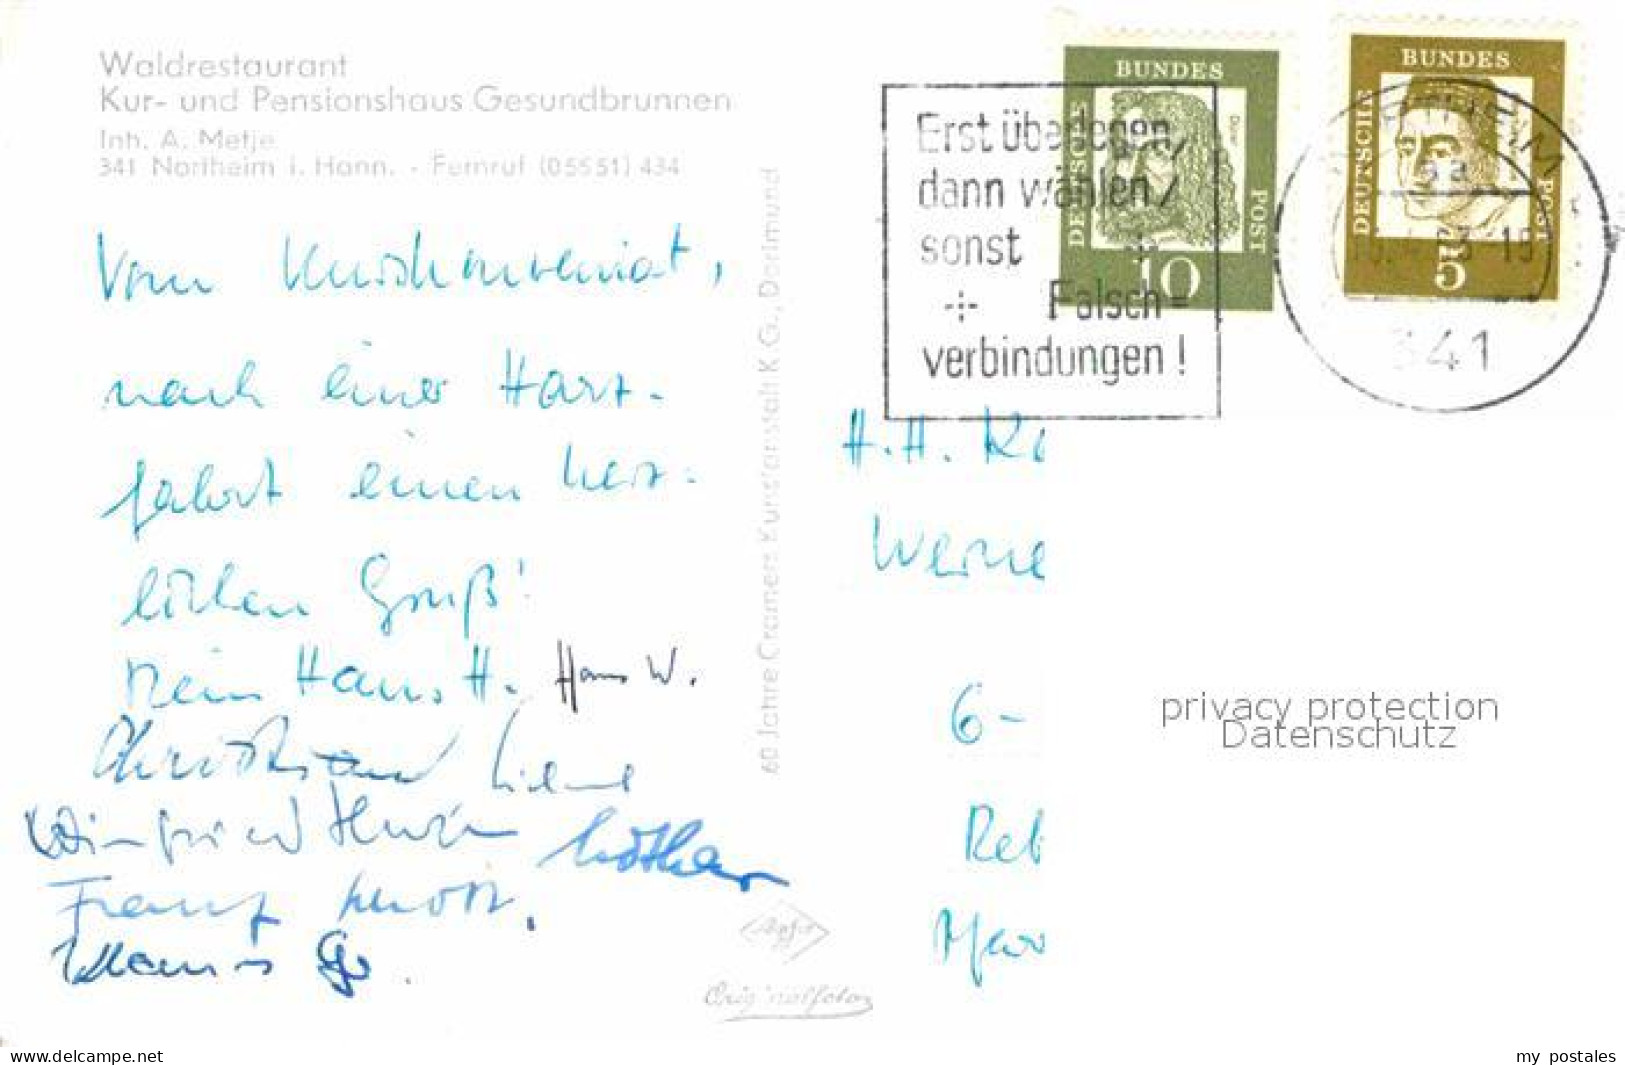 Waldrestaurant
Kur- und Pensionshaus Gesundbrunnen
Inh. A. Metje
341 Northeim i. Hann. - Fernruf (05551) 434
Vom
nach einer Harz-
fahrt einen herz-
lichen Gruß!
Dein Hans H. Hans W.
Christian
Winfried
Lothar
Franz
60 Jahre Cramers Kunstanstalt K.G., Dortmund
Agfa
Originalfoto
Erst überlegen,
dann wählen,
sonst
Falsch=
verbindungen!
DEUTSCHE BUNDES POST
Dürer
10
DEUTSCHE BUNDES POST
5
NORTHEIM
19
341
H. H. K
Werne
6-
Reb
privacy protection
Datenschutz
www.delcampe.net
my_postales